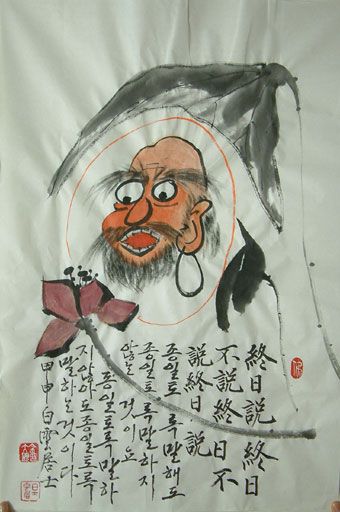 終日說終日
不說終日不
說終日說
종일토록말해도
종일토록말하지
않는것이요
종일토록말하
지않아도종일토록
말하는것이다
甲申白雲居士